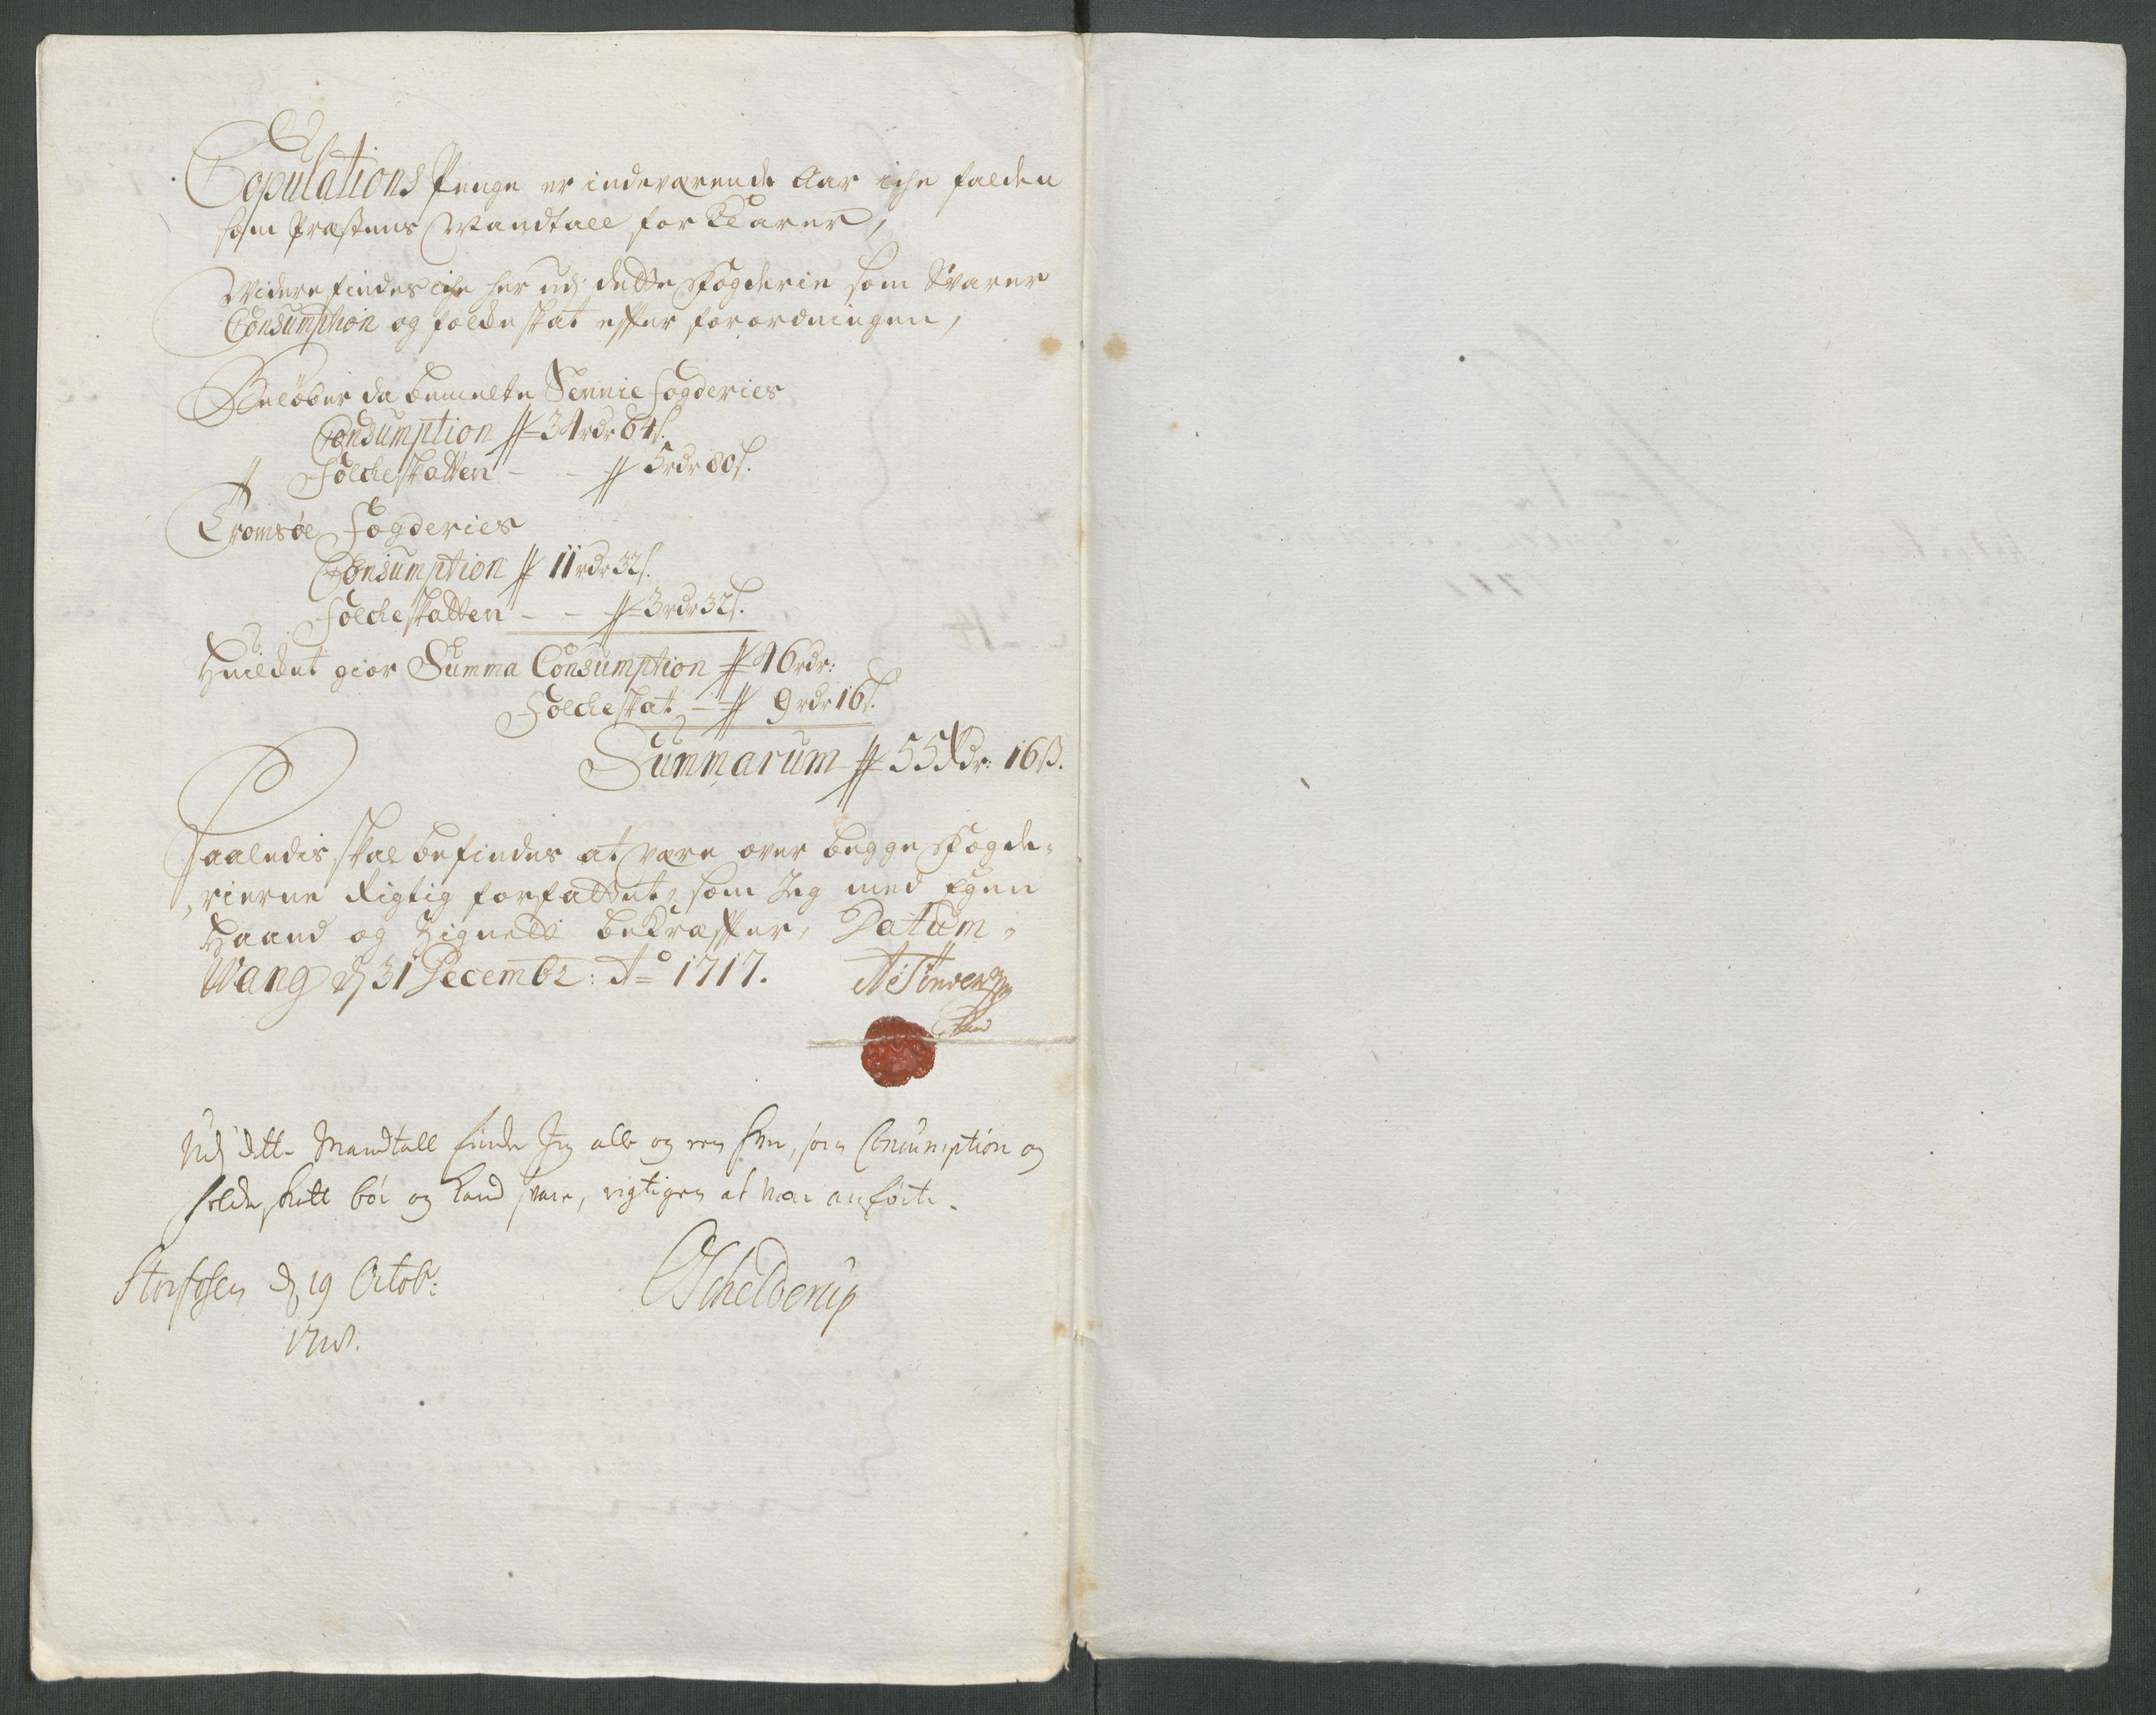 Copulations Penge er indeværende Aar iche falden
som Præstens Mandtall forklarer,
Widere findes iche her udj dette Fogderie som Svarer
Consumption og folcke skat efter forordningen,
Beløber da bemelte Sennie fogderies
Consumption # 34 rdr 64 s.
# Folche skatten - - # 5 rdr 80 s.
Tromsøe Fogderies
Consumption # 11 rdr 32 s.
Folche skatten - - # 3 rdr 32 s.
Huilcket giør Summa Consumption # 46 rdr:
Folche skat - # 9 rdr 16 s.
Summarum # 55 Rdr: 16 β.
Saaledis skal befindes at være over begge Fogde-
rierne Rigtig forfattet, som Jeg med Egen
Haand og Zignete bekræffter, Datum
Wang d 31 Decembr: Ao 1717.
Udj dette Mandtall finder Jeg alle og een hver, som Consumption og
folche skatt bør og kand svare, rigtigen at være anførte.
Storfosen d 19 Octobr:
1718.
Schelderup